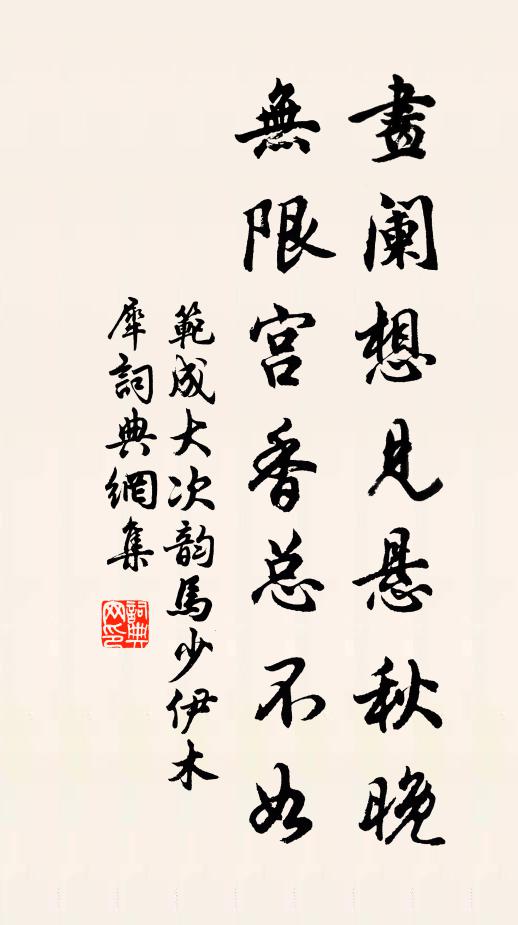 畫阑想見悬秋晚
無限宫香总不如
範成大次韵馬少伊木
犀詞典網集
詞典网印